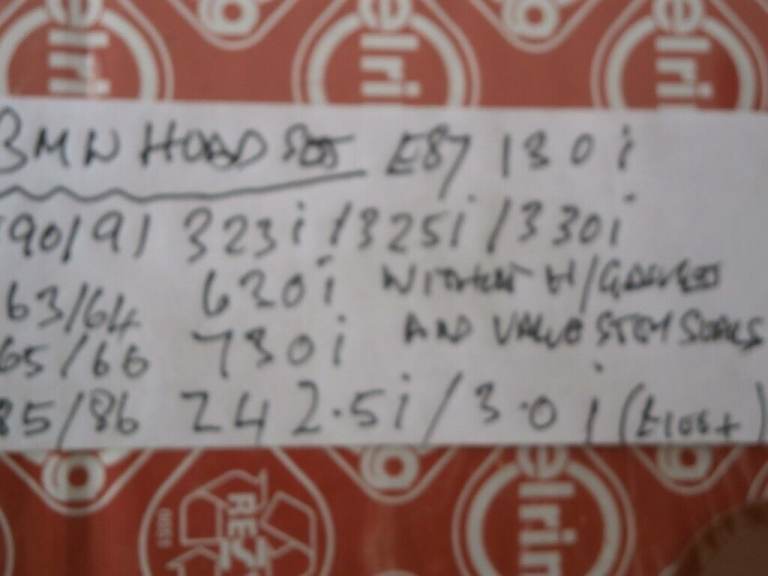 elring elring elring
BMW HEAD SET E87 130i
E90/91 323i/325i/330i
63/64 630i WITHOUT H/GASKET
65/66 730i AND VALVE STEM SEALS
85/86 Z4 2.5i/3.0i
elring
RE